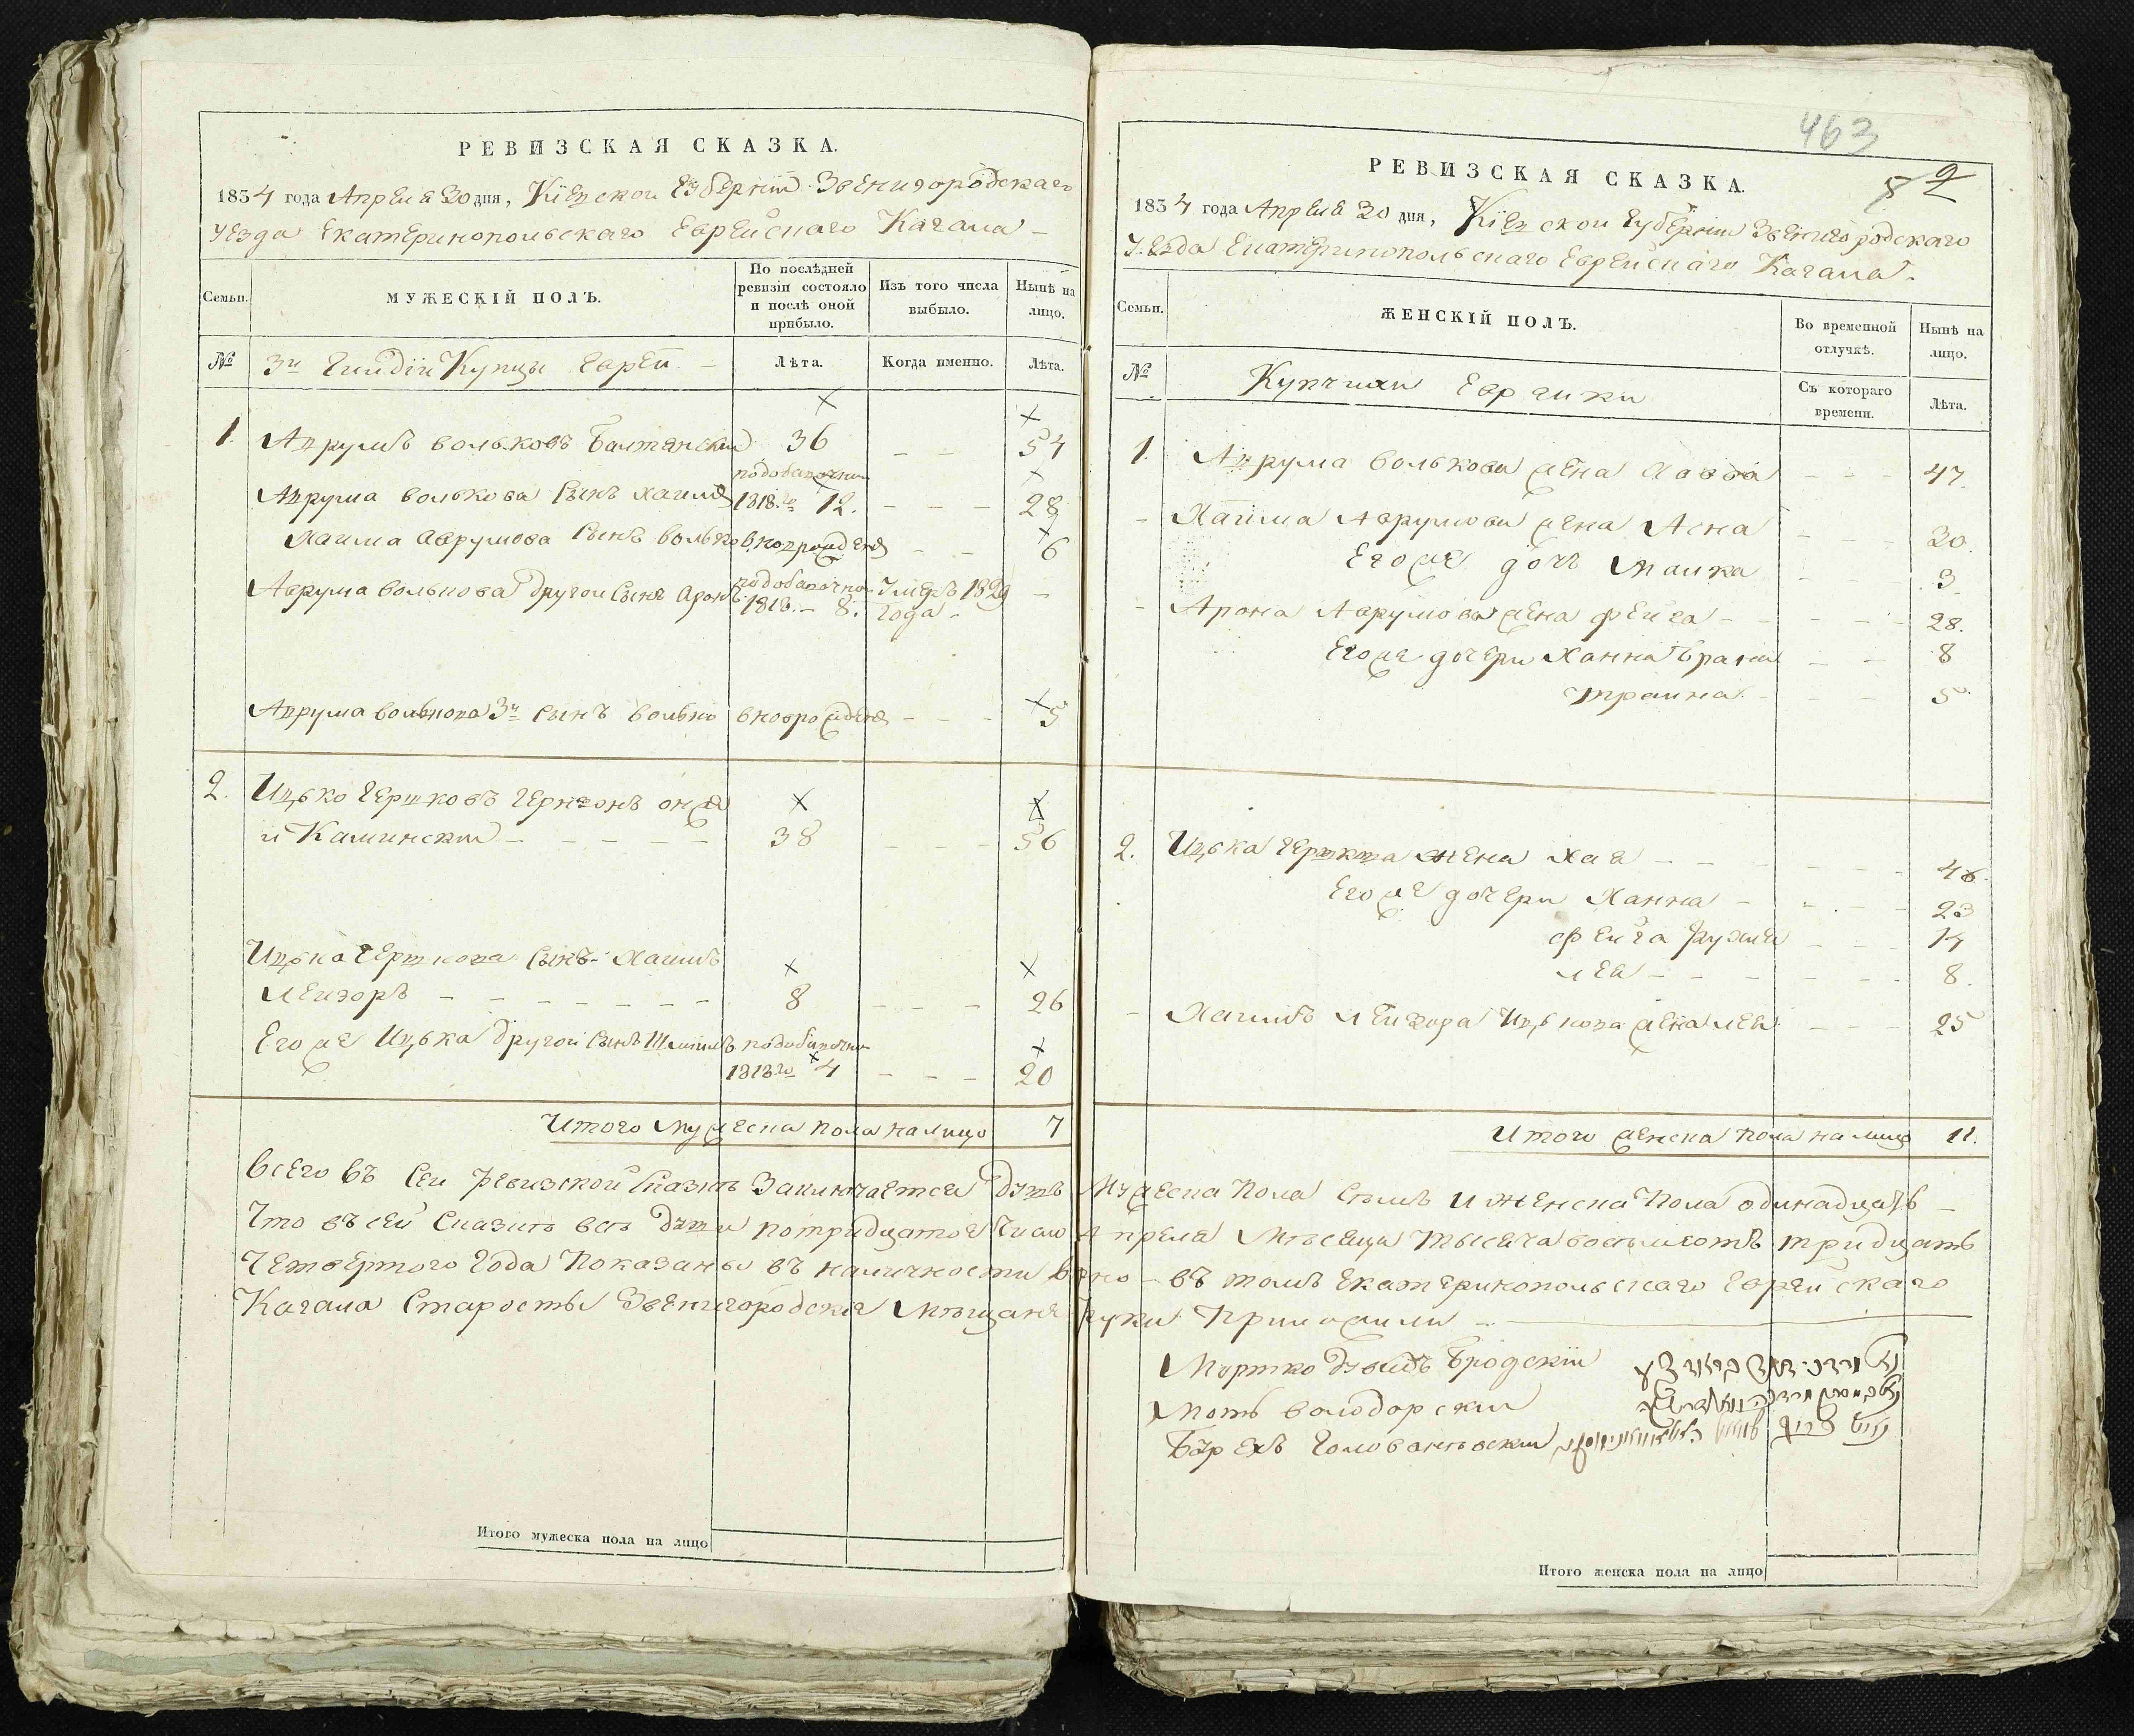 РЕВИЗСКАЯ СКАЗКА.
1834 года Апреля 30 дня, Кіевской Губерніи Звенигородскаго
уезда Екатеринопольскаго Еврейскаго Кагала
Семьи.
МУЖЕСКІЙ ПОЛЪ.
По послѣдней ревизіи состояло и послѣ оной прибыло.
Изъ того числа выбыло.
Нынѣ на лицо.
№
3й Гилдіи Купцы Евреи
Лѣта.
Когда именно.
Лѣта.
1. Аврумъ Вольковъ Балтянский 36 54
Аврума Волькова Сынъ Хаимъ по добавочной 1818.го 12. 28
Хаима Аврумова Сынъ Волько вновьрожденъ 6
Аврума Волькова другой Сынъ Аронъ по добавочной 1818.- 8. Умеръ 1829 года
Аврума Волькова 3й Сынъ Волько вноврожденъ 5
2. Ицько Гершковъ онже
и Каминский 38 56
Ицька Гершкова Сынъ Хаимъ
Лейзоръ 8 26
Егоже Ицька другой Сынъ Шлиомъ по добавочной
1818го 4 20
Итого мужеска пола на лицо 7
РЕВИЗСКАЯ СКАЗКА.
463
1834 года Апреля 30 дня, Кіевской Губерніи Звенигородскаго
Уезда Екатеринопольскаго Еврейскаго Кагала.
Семьи.
ЖЕНСКІЙ ПОЛЪ.
Во временной отлучкѣ.
Нынѣ на лицо.
№
Купчихи Еврейки
Съ котораго времени.
Лѣта.
1 Аврума Волькова жена 47.
Хаима Аврумова жена Асна 30.
Егоже дочь Малка 3.
Арона Аврумова жена Фейга 28.
Егоже дочери Ханна 8
Траина 5
2. Ицька Гершкова жена Хая 46
Егоже дочери Ханна 23
Фейга Рухля 14
Лея 8.
Хаимъ Лейзора Ицькова жена Лея 25
Итого женска пола на лицо 11.
Всего въ Сеи ревизской сказкѣ заключается душъ Мужеска пола семъ и женска пола одинадцать
Что въ сей Сказкѣ всѣ души по тридцатое число Апреля Мѣсяца тысяча восимсотъ тридцать
Четвертого Года показаны въ наличности вѣрно въ томъ Екатеринопольскаго Еврейскаго
Кагала Старосты Звенигородские мѣщане руки приложили
Мортко Дувидъ Бродскій
Моть Володарский
Барехъ Голованевский
Итого мужеска пола на лицо
Итого женска пола на лицо